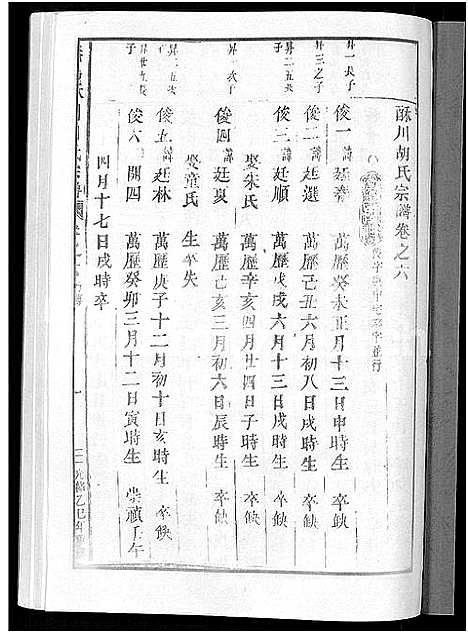 酥川胡氏宗譜卷之六
昇一長子
俊一 諱廷春 萬歷癸未正月十三日申時生 卒缺
昇三之子
俊二 諱廷選 萬歷己丑六月初八日戌時生 卒缺
昇二五次
俊三 諱廷順 萬歷戊戌六月十三日戌時生 卒缺
娶朱氏 萬歷辛亥四月廿四日子時生 卒缺
昇一次子
俊四 諱廷夏 萬歷己亥三月初六日辰時生 卒缺
娶童氏 生卒失
俊五 諱廷林 萬歷庚子十二月初十日亥時生 卒缺
俊六 諱開四 萬歷癸卯三月十二日寅時生 崇禎壬午
四月十七日戌時卒
光緒乙巳年